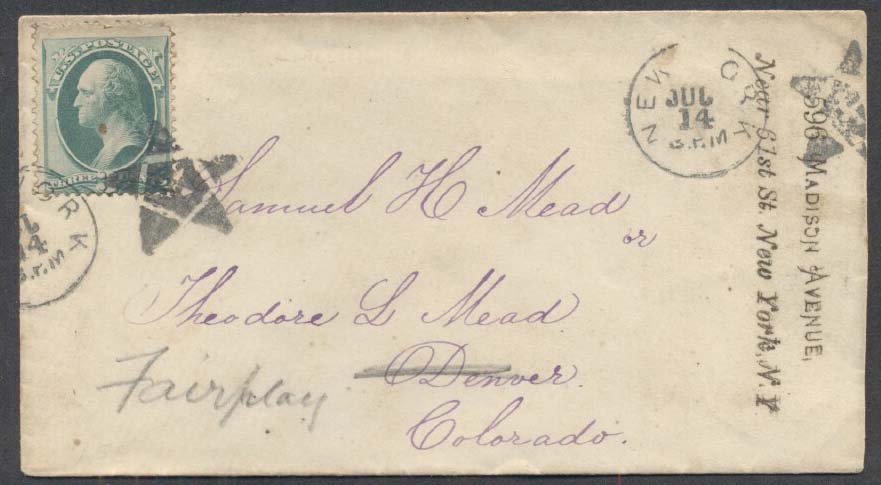 U.S. POSTAGE
THREE
NEW YORK
JUL
14
3.P.M
ORK
14
3.P.M
596 MADISON AVENUE,
Near 61st St. New York, N.Y
Samuel H Mead
or
Theodore L Mead
Denver.
Fairplay
Colorado.